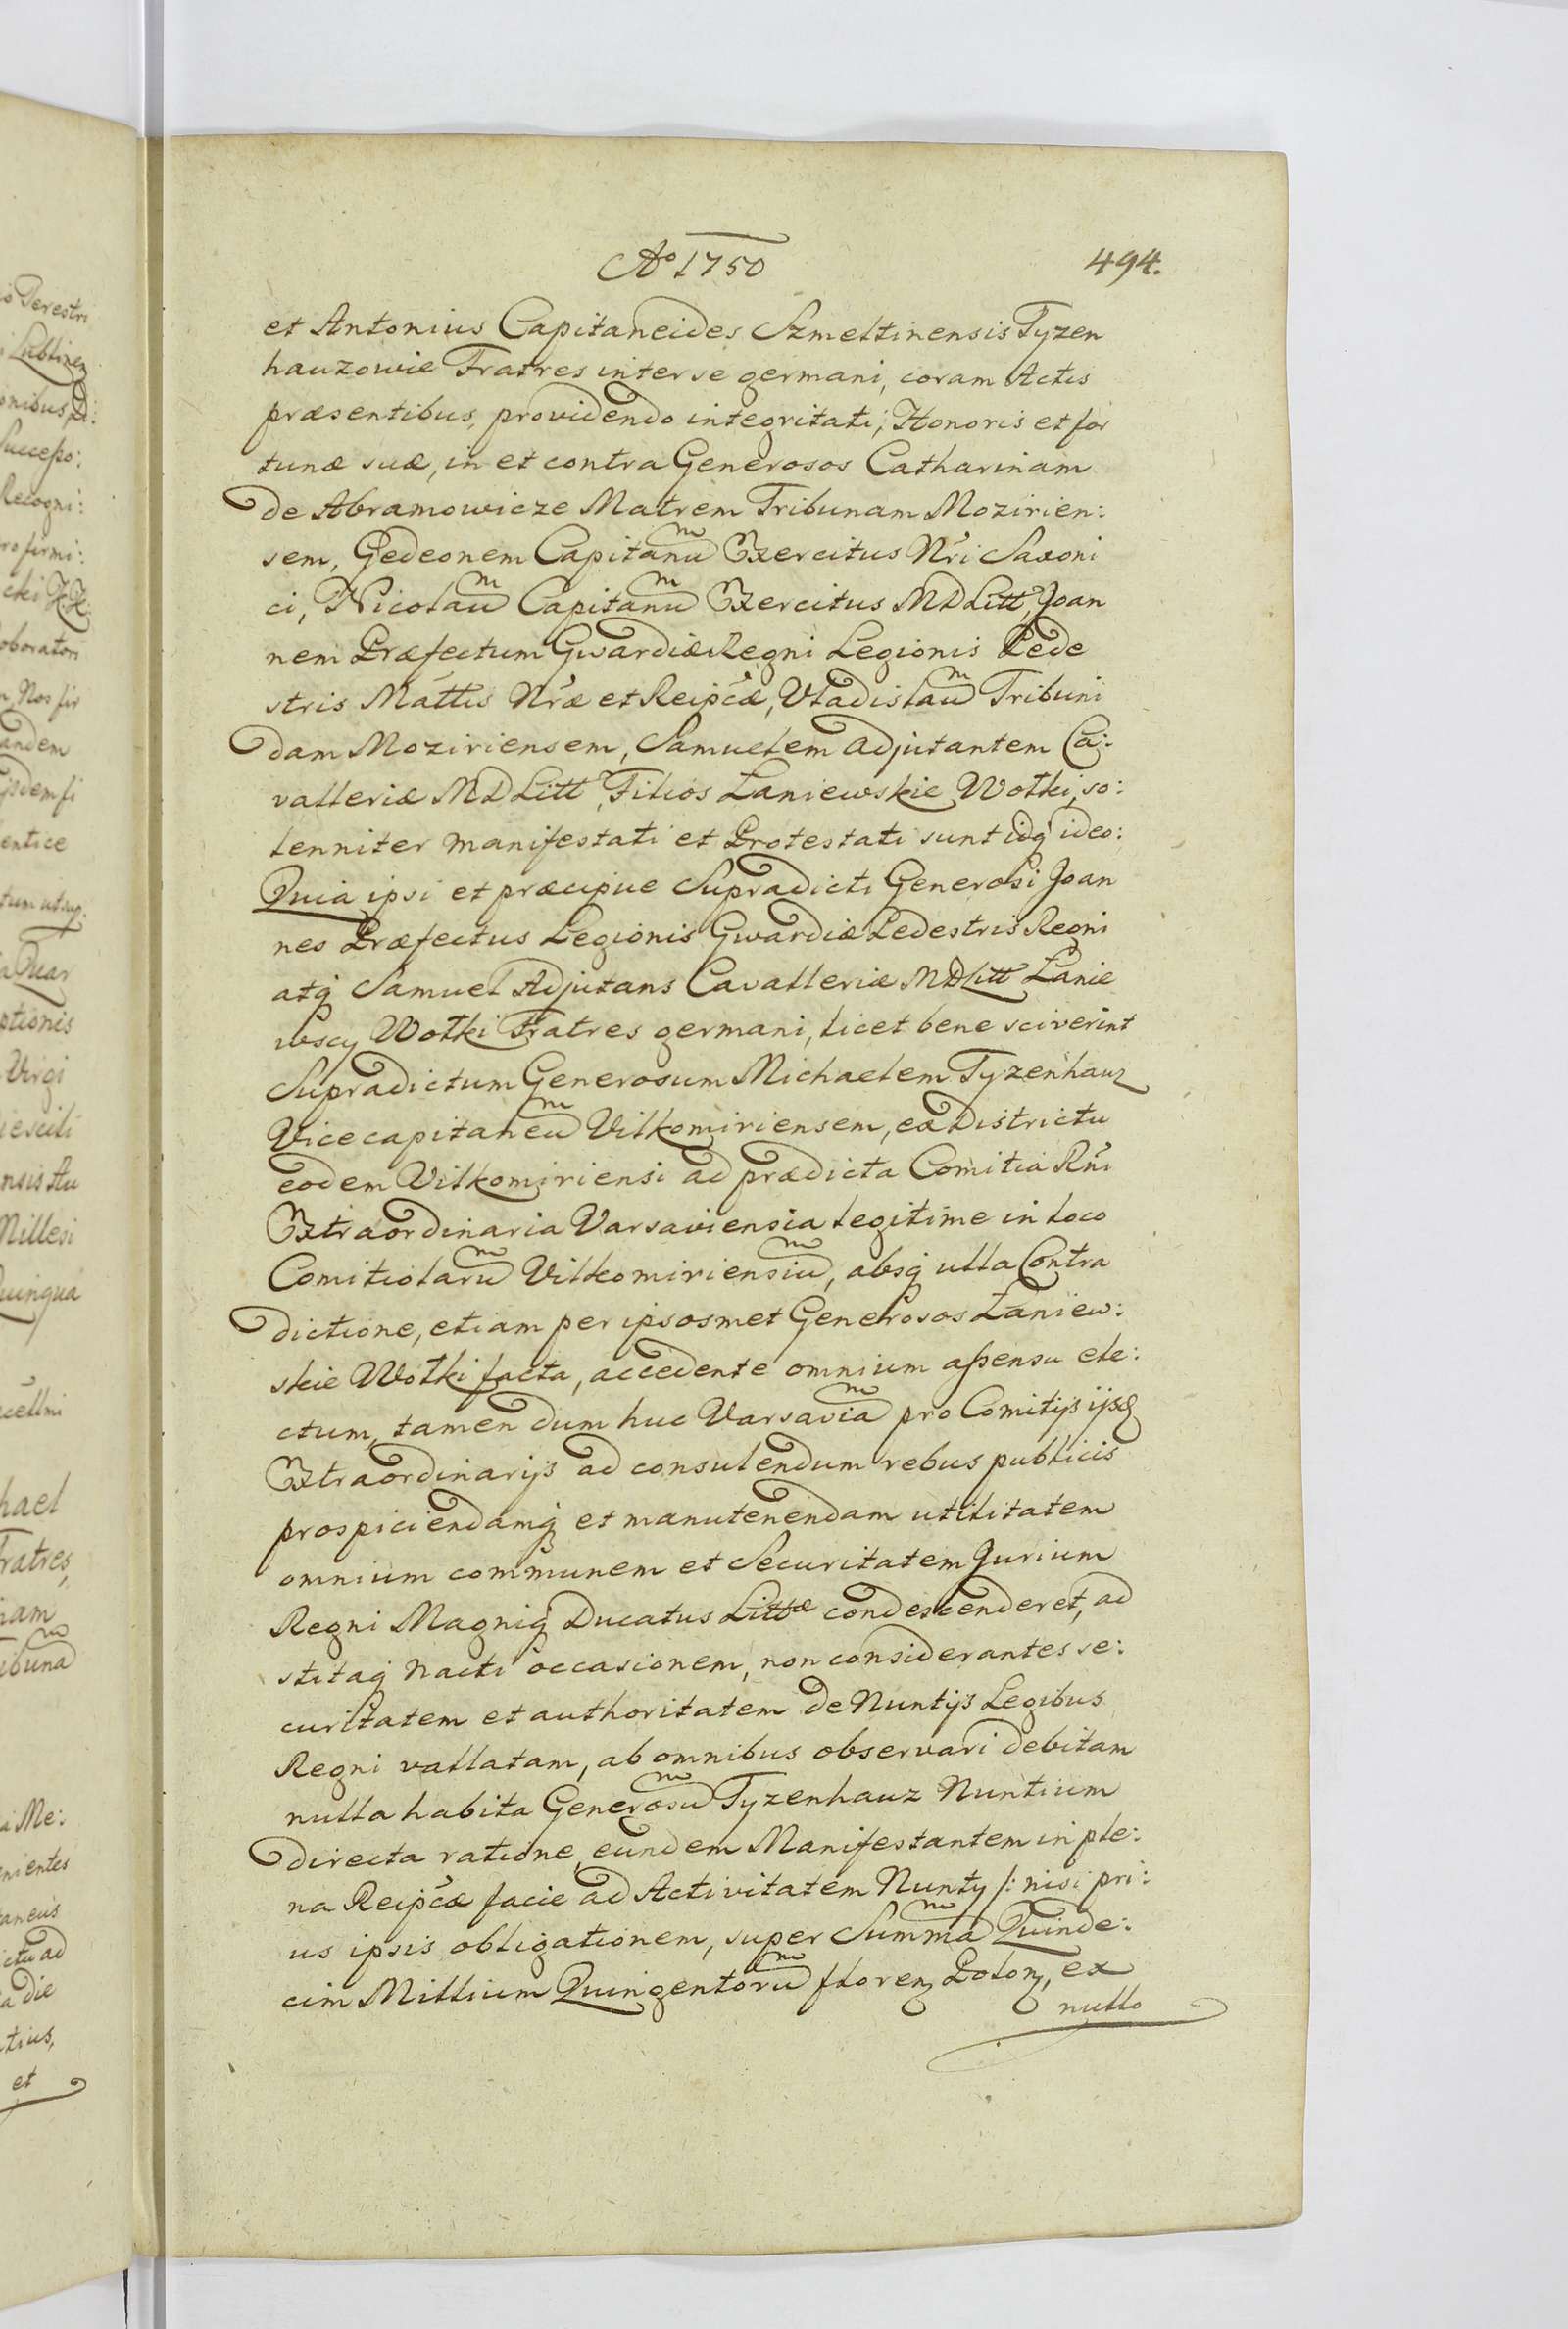 Aº 1750
494.
et Antonius Capitaneides Szmeltinensis Tyzen
hauzowie Fratres inter se germani, coram Actis
præsentibus, providendo integritati, Honoris et for
tunæ suæ, in et contra Generosos Catharinam
de Abramowicze Matrem Tribunam Mozirien:
sem, Gedeonem Capitanũ Exercitus Nr̃i Saxoni
ci, Nicolaũ Capitanũ Exercitus MDLitt, Joan
nem Præfectum Gwardiæ Regni Legionis Pede
stris Mättis Nr̃æ et Reipcæ, Vladislaũ Tribuni
dam Moziriensem, Samuelem Adjutantem Ca:
valleriæ MDLitt, Filios Łaniewskie Wołki, so:
lenniter manifestati et Protestati sunt idq ideo:
Quia ipsi et præcipue Supradicti Generosi Joan
nes Præfectus Legionis Gwardiæ Pedestris Regni
atq Samuel Adjutans Cavalleriæ MDLitt Łanie
wscy Wołki Fratres germani, licet bene sciverint
Supradictum Generosum Michaelem Tyzenhauz
Vicecapitaneũ Vilkomiriensem, ex Districtu
eodem Vilkomiriensi ad prædicta Comitia Rñi
Extraordinaria Varsaviensia legitime in loco
Comitiolarũ Vilkomiriensiũ, absq ulla Contra
dictione, etiam per ipsosmet Generosos Łaniew:
skie Wołki facta, accedente omnium assensu ele:
ctum, tamen dum huc Varsaviã pro Comitijs ijsq
Extraordinarijs ad consulendum rebus publicis
prospiciendamq et manutenendam utilitatem
omnium communem et Securitatem Jurium
Regni Magniq Ducatus Littæ condescenderet, ad
stitaq nacti occasionem, non considerantes se:
curitatem et authoritatem de Nuntijs Legibus
Regni vallatam, ab omnibus observari debitam
nulla habita Generosũ Tyzenhauz Nuntium
directa ratione, eundem Manifestantem in ple:
na Reipcæ facie ad Activitatem Nunty /: nisi pri:
us ipsis obligationem, super Summã Quinde:
cim Millium Quingentorũ floren Polon, ex
nullo